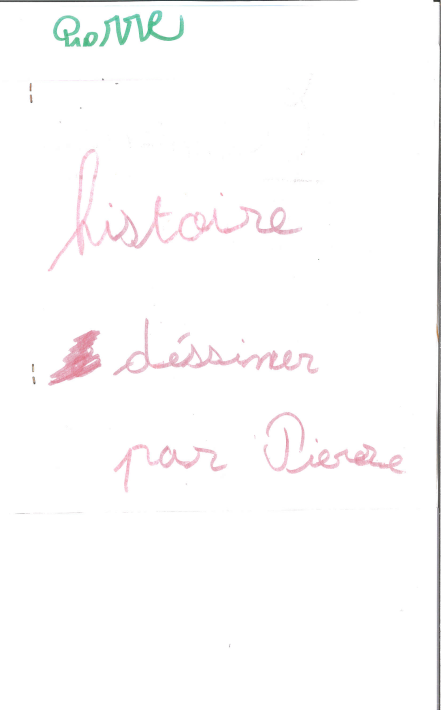 Pierre
histoire
déssiner
par Pierre